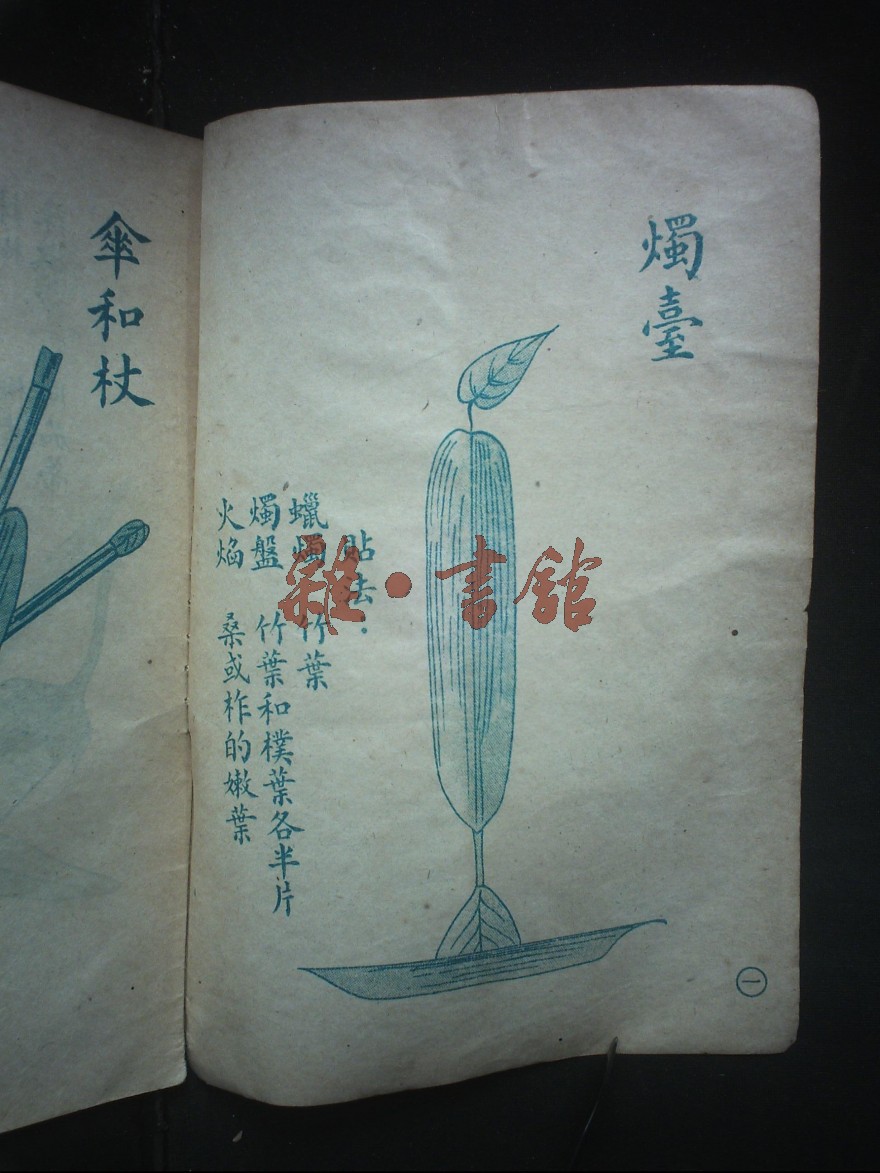 燭臺
貼法·
蠟燭 竹葉
燭盤 竹葉和樸葉各半片
火焰 桑或柞的嫩葉
㊀
傘和杖
雜·書館